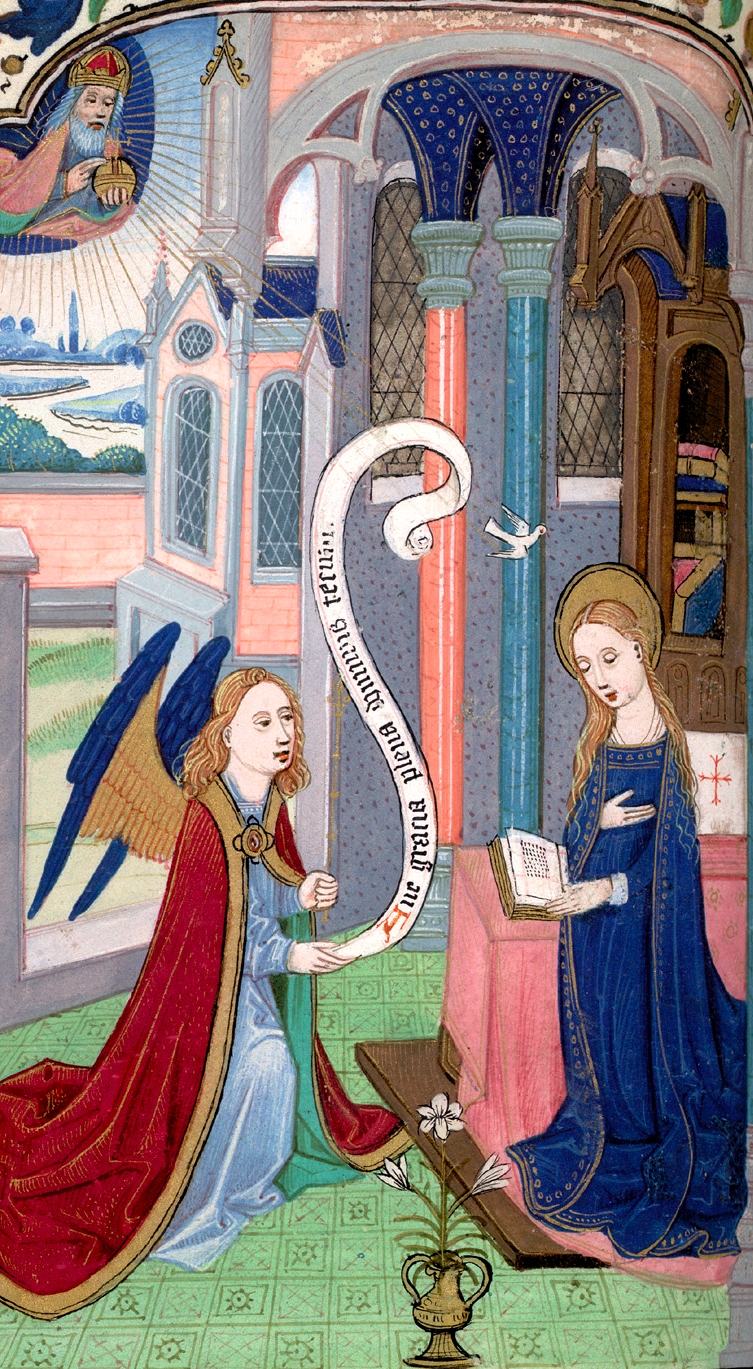 Aue gracia plena dominus tecum.